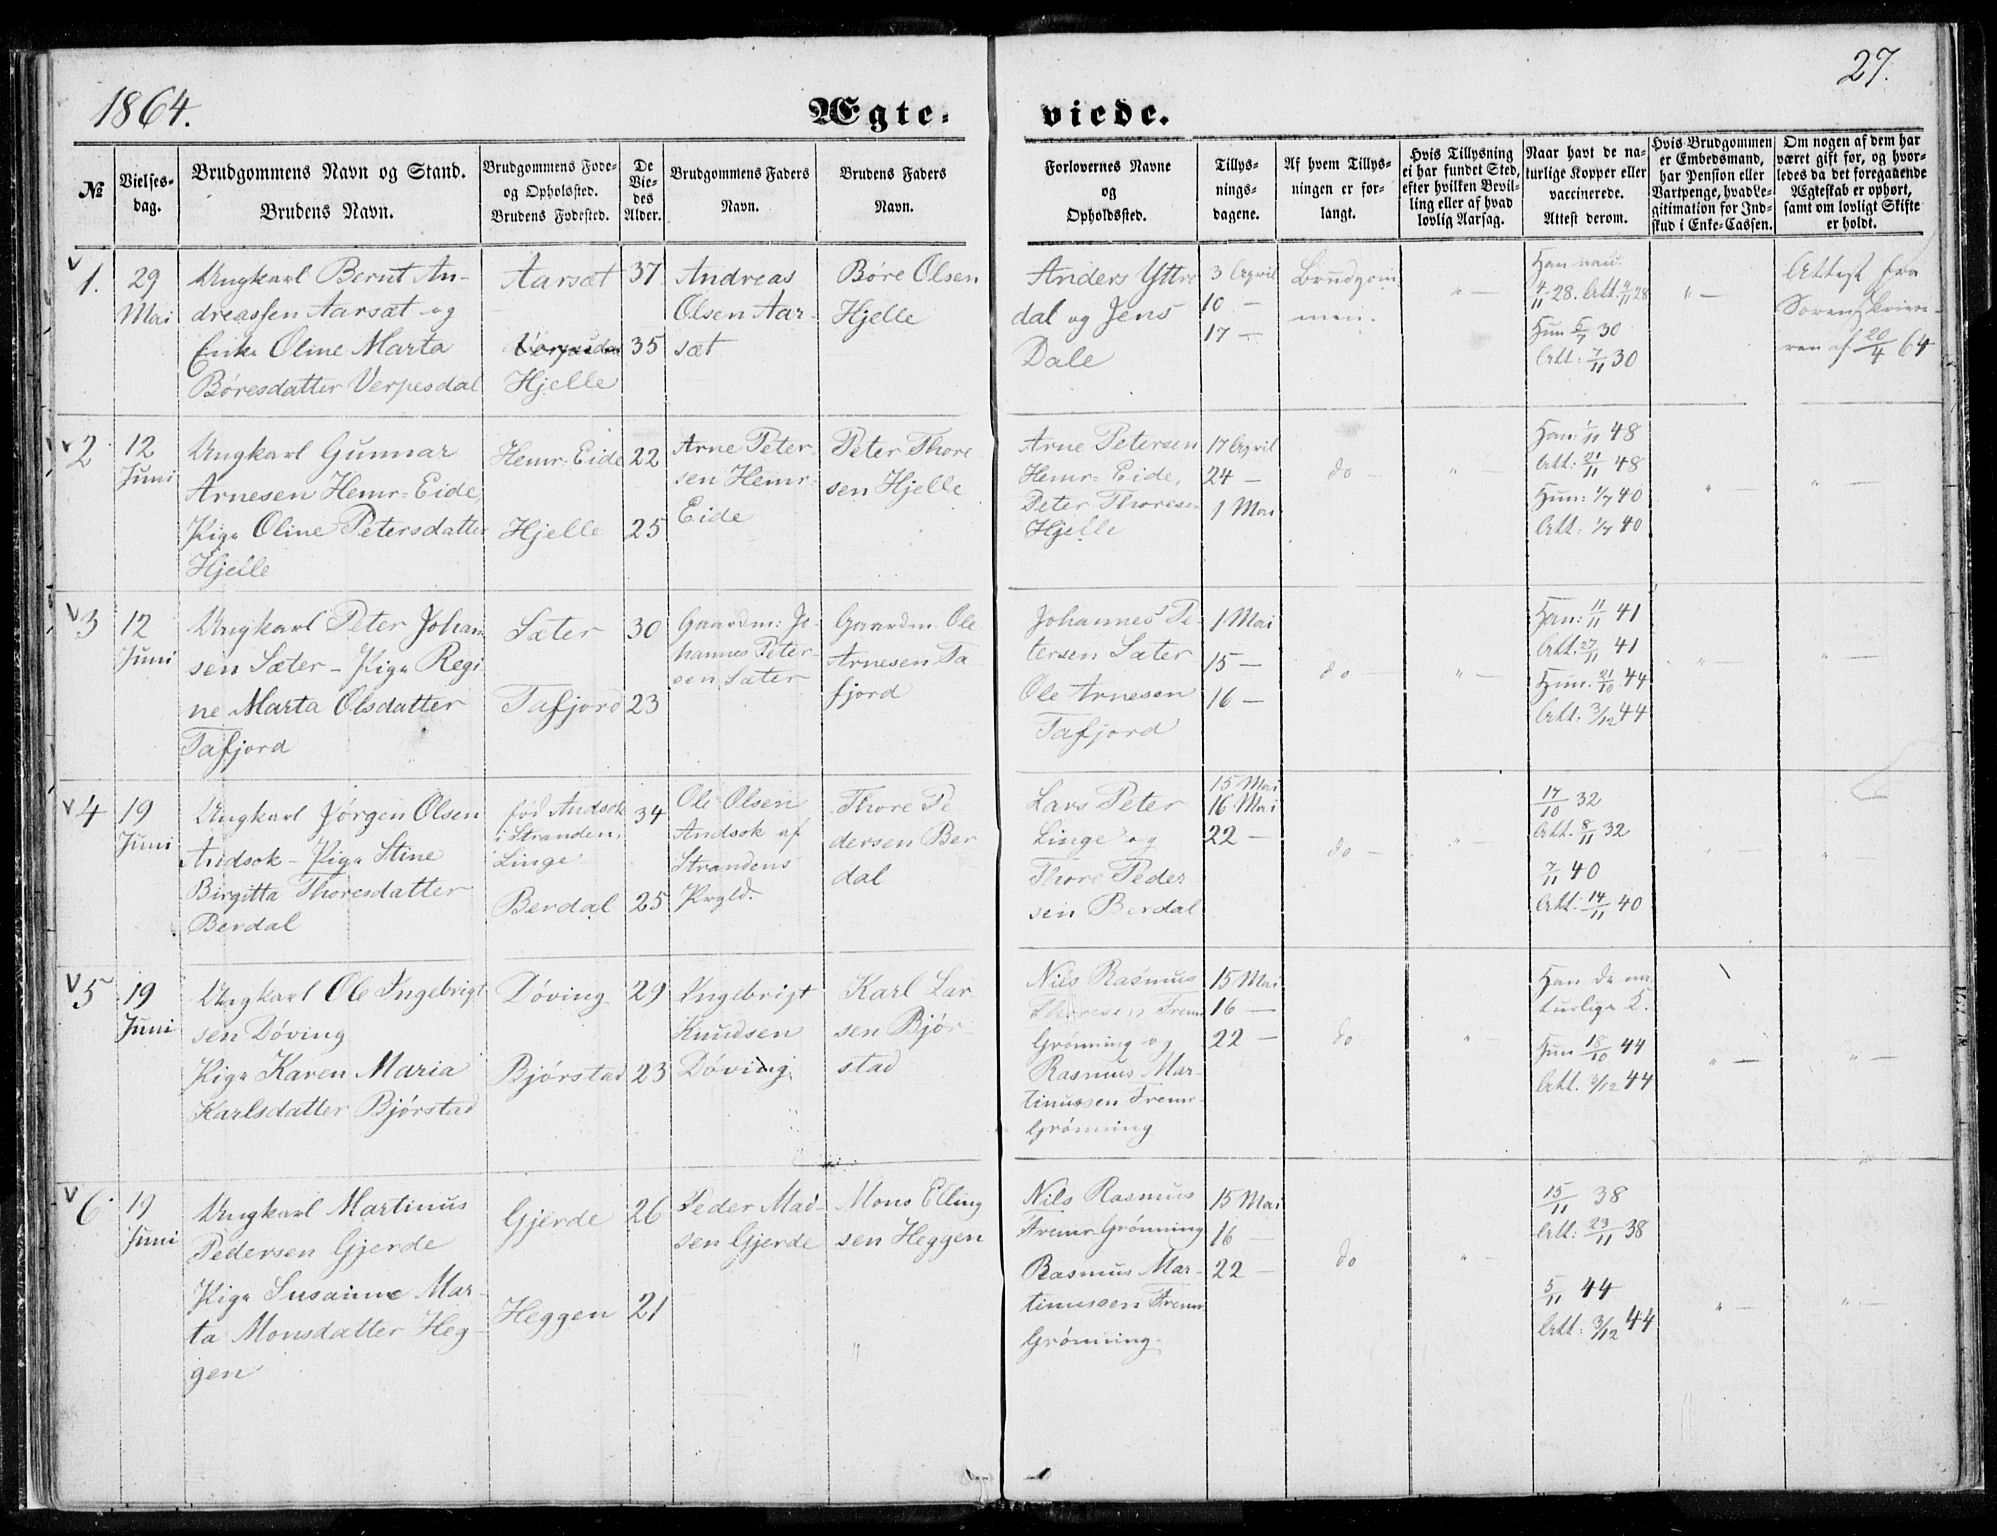 1864.
Ægte-
viede.
27.
№
Vielses-
dag.
Brudgommens Navn og Stand.
Brudens Navn.
Brudgommens Fode-
og Opholssted.
Brudens Fodested.
De
Vie-
des
Alder.
Brudgommens Faders
Navn.
Brudens Faders
Navn.
Forlovernes Navne
og
Opholdssted.
Tillys-
nings-
dagene.
Af hvem Tillys-
ningen er for-
langt.
Hvis Tillysning
ei har fundet Sted,
efter hvilken Bevil-
ling eller af hvad
lovlig Aarsag.
Naar havt de na-
turlige Kopper eller
vaccinerede.
Attest derom.
Hvis Brudgommen
er Embedsmand,
har Pension eller
Vartpenge, hvad Le-
gitimation for Ind-
skud i Enke-Cassen.
Om nogen af dem har
været gift for, og hvor-
ledes da det foregaaende
Ægteskab er ophørt,
samt om lovligt Skifte
er holdt.
1.
29
Mai
Ungkarl Bernt An-
dreassen Aarsæt og
Enke Oline Marta
Børesdatter Verpesdal
Aarsæt
Hjelle
37
35
Andreas
Olsen Aar-
sæt
Børe Olsen
Hjelle
Anders Yttre
dal og Jens
Dale
3 April
10 —
17 —
Brudgom
men.
" —
Han vau.
4/11 28. Att. 4/11 28
Hun 5/7 30
Att: 7/11 30
" —
Attest fra
Sorenskrive-
ren af 20/4 64
2
12
Juni
Ungkarl Gunnar
Arnesen Hemr=Eide,
Pige Oline Petersdatter
Hjelle
Hemr=Eide
Hjelle
22
25
Arne Peter
sen Hemr-
Eide
Peter Thore
sen Hjelle
Arne Petersen
Hemr=Eide,
Peter Thoresen
Hjelle
17 April
24 —
1 Mai
do —
" —
Han: 1/11 48
Att: 21/11 48
Hun: 1/7 40
Att: 1/7 40
" —
" —
3
12
Juni
Ungkarl Peter Johan
sen Sæter – Pige Regi
ne Marta Olsdatter
Tafjord
Sæter
Tafjord
30
23
Gaardm: Jo-
hannes Peter-
sen Sæter
Gaardm. Ole
Arnesen Ta
fjord
Johannes Pe-
tersen Sæter
Ole Arnesen
Tafjord
1 Mai
15 —
16 —
do —
" —
Han: 11/11 41
Att. 27/11 41
Hun. 21/10 44
Att. 3/12 44
" —
" —
4
19
Juni
Ungkarl Jørgen Olsen
Andsok – Pige Stine
Birgitta Thoresdatter
Berdal
fød Andsok
i Stranden,
Linge
Berdal
34
25
Ole Olsen
Andsok af
Strandens
Prgld.
Thore Pe
dersen Ber
dal
Lars Peter
Linge og
Thore Peder
sen Berdal
15 Mai
16 Mai
22 —
do —
" —
17/10 32
Att. 8/11 32
7/11 40
Att: 14/11 40
" —
" —
5
19
Juni
Ungkarl Ole Ingebrigt
sen Døving
Pige Karen Maria
Karlsdatter Bjørstad
Døving
Bjørstad
29
23
Ingebrigt
Knudsen
Døving
Karl Lar
sen Bjør
stad
Nils Rasmus
Thoresen Fremr
Grønning og
Rasmus Mar-
tinussen Fremr-
Grønning
15 Mai
16 —
22 —
do
" —
Han de na
turlige K.
Hun 18/10 44
Att. 3/12 44
" —
" —
6.
19
Juni
Ungkarl Martinus
Pedersen Gjerde
Pige Susanne Mar-
ta Monsdatter Heg-
gen
Gjerde
Heggen
26
21
Peder Mad-
sen Gjerde
Mons Elling
sen Heggen
Nils Rasmus
Fremr-Grønning
Rasmus Mar-
tinussen Fremr
Grønning.
15 Mai
16 —
22 —
do
" —
15/11 38
Att: 23/11 38
5/11 44
Att: 3/12 44
" —
" —